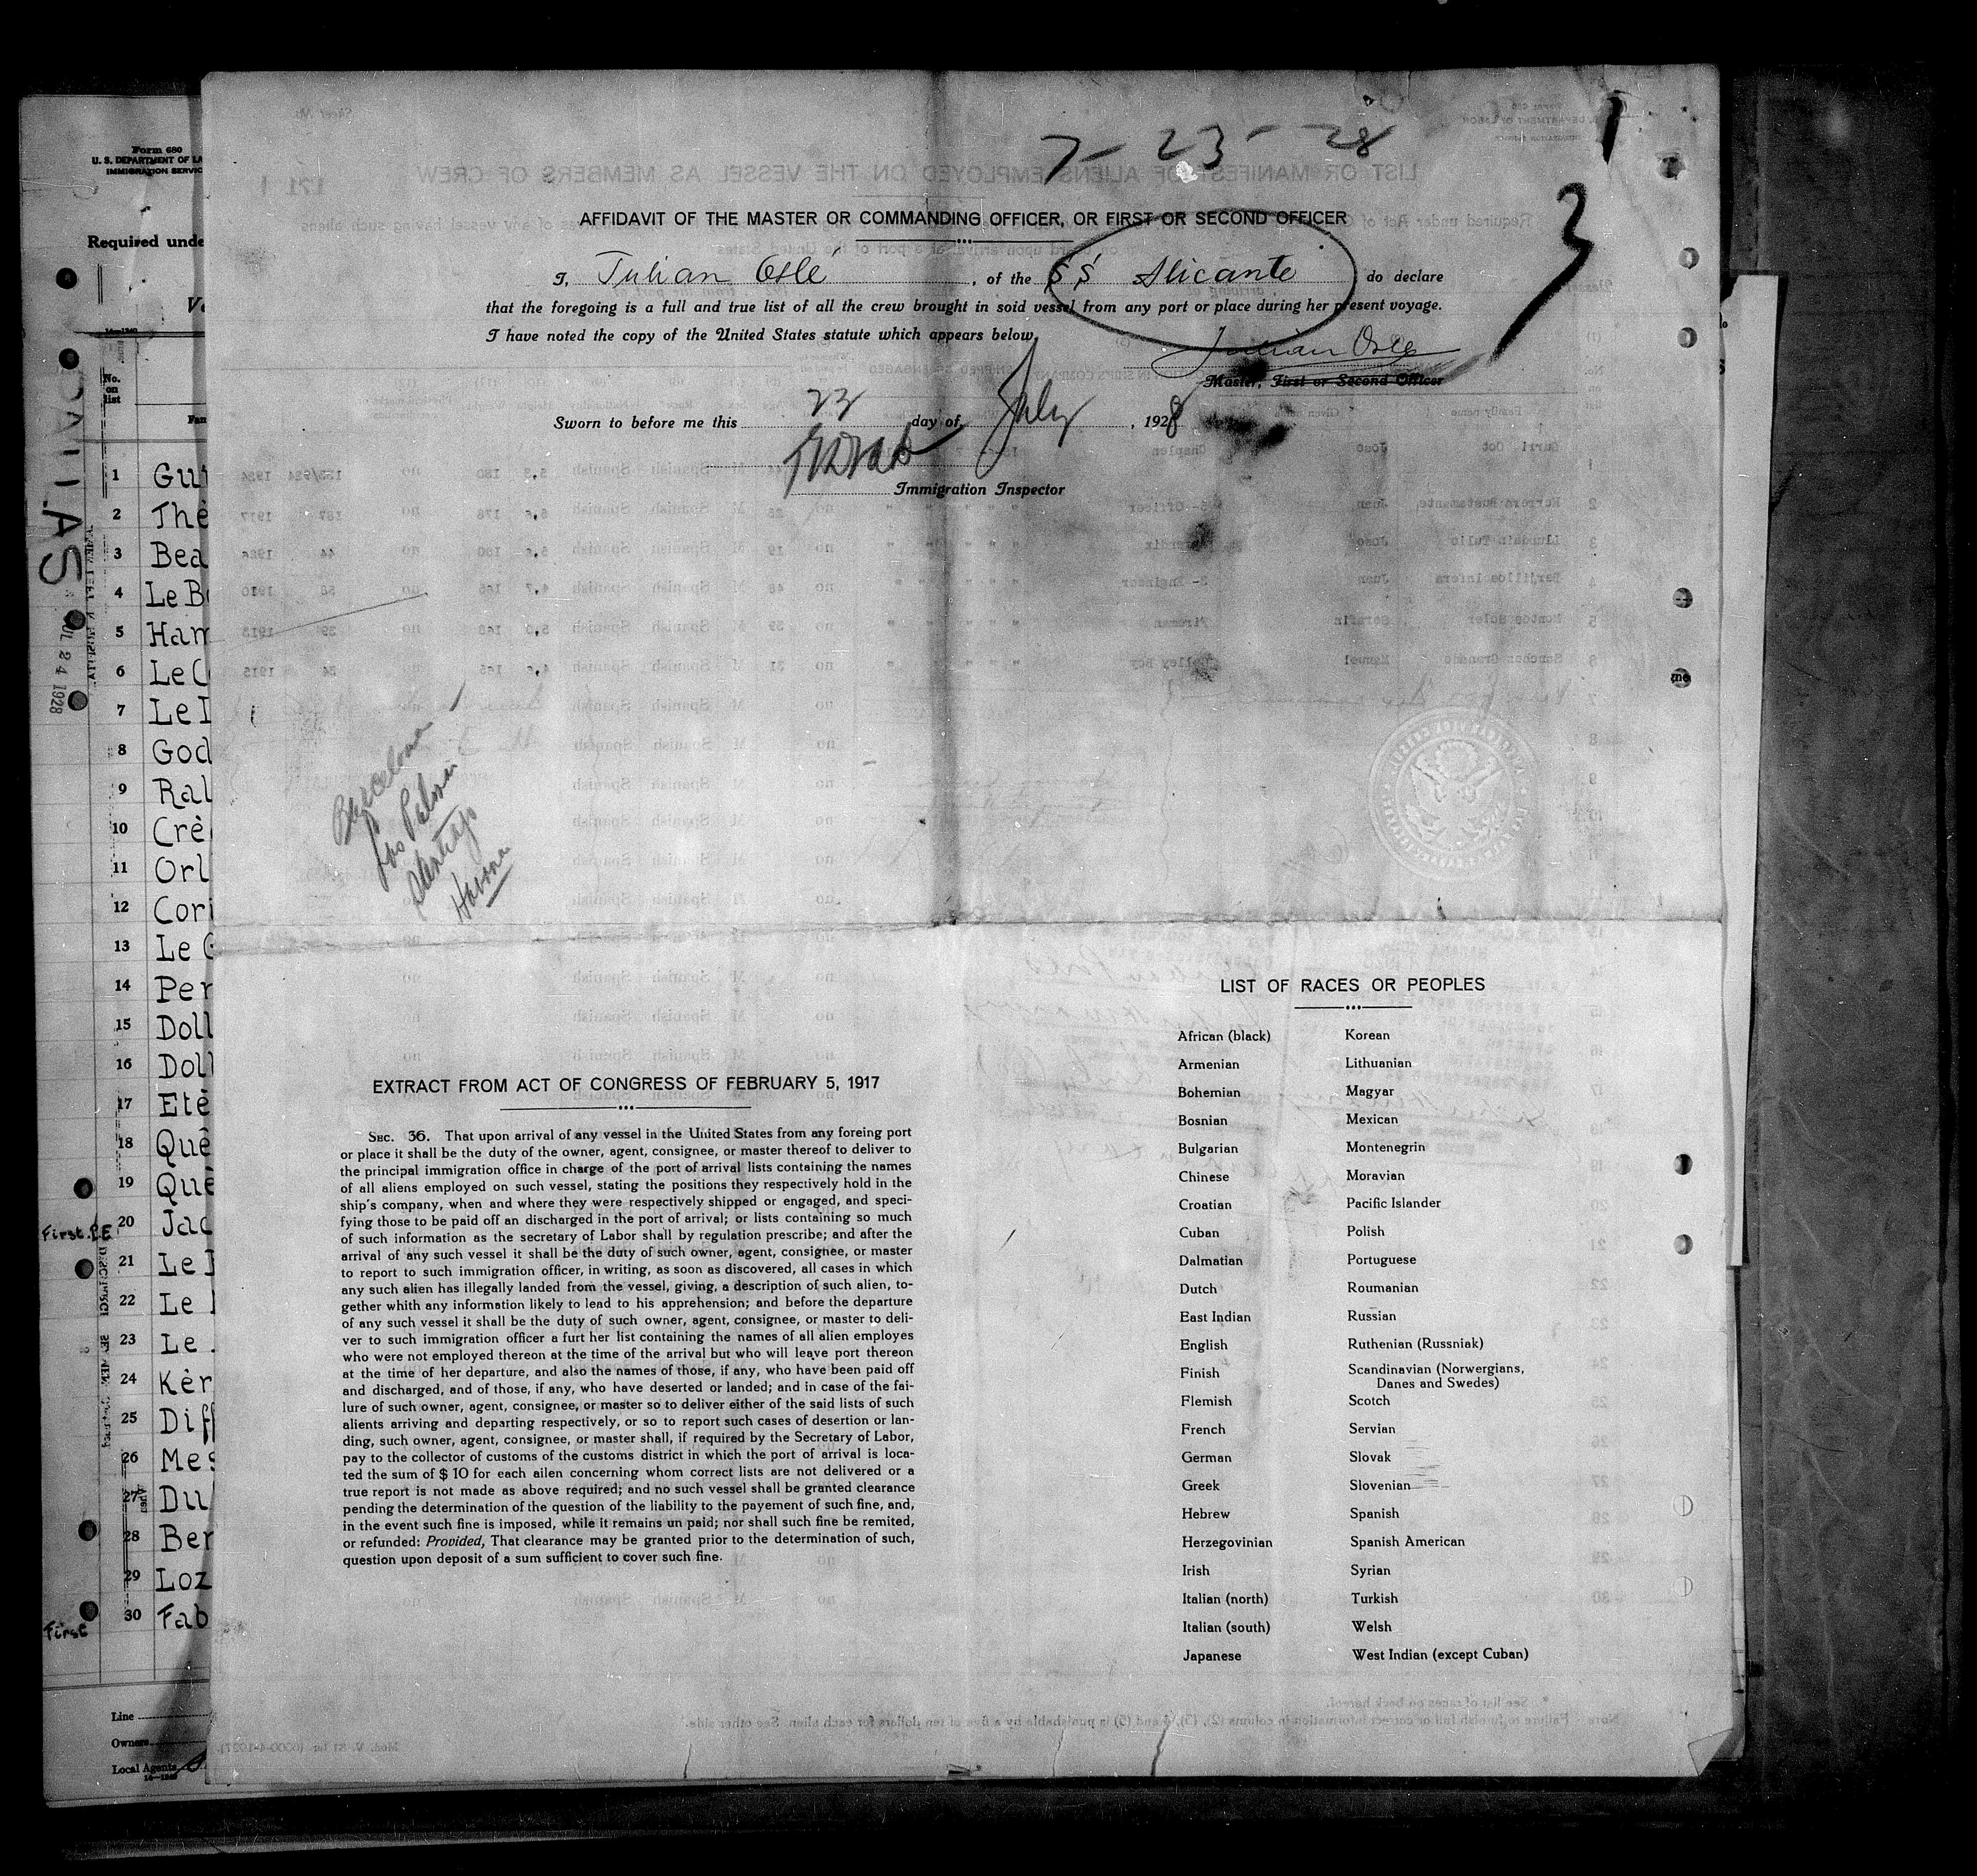 Form 680
U. S. DEPARTMENT OF LA
IMMIGRATION SERVIC
Required unde
No.
on
list
Fam
1 Gu
2 Thé
3 Bea
4 Le B
5 Ham
6 Le C
7 Le
8 God
9 Ral
10 Crè
11 Orl
12 Cori
13 Le
14 Per
15 Doll
16 Doll
17 Etè
18 Què
19 Què
20 Jac
21 Le
22 Le
23 Le
24 Kèr
25 Diff
26 Mes
27 Du
28 Ber
29 Loz
30 Fab
First
Line
Owners
Local Agents
JUL 24 1928
7-23-28
1
3
AFFIDAVIT OF THE MASTER OR COMMANDING OFFICER, OR FIRST OR SECOND OFFICER
I, Julian Oslé, of the SS Alicante do declare
that the foregoing is a full and true list of all the crew brought in soid vessel from any port or place during her present voyage.
I have noted the copy of the United States statute which appears below.
Julian Osle
Master, First or Second Officer
Sworn to before me this 23 day of July, 1928
Immigration Inspector
Barcelona
Las Palmas
Santiago
Havana
EXTRACT FROM ACT OF CONGRESS OF FEBRUARY 5, 1917
SEC. 36. That upon arrival of any vessel in the United States from any foreing port
or place it shall be the duty of the owner, agent, consignee, or master thereof to deliver to
the principal immigration office in charge of the port of arrival lists containing the names
of all aliens employed on such vessel, stating the positions they respectively hold in the
ship's company, when and where they were respectively shipped or engaged, and speci-
fying those to be paid off an discharged in the port of arrival; or lists containing so much
of such information as the secretary of Labor shall by regulation prescribe; and after the
arrival of any such vessel it shall be the duty of such owner, agent, consignee, or master
to report to such immigration officer, in writing, as soon as discovered, all cases in which
any such alien has illegally landed from the vessel, giving, a description of such alien, to-
gether whith any information likely to lead to his apprehension; and before the departure
of any such vessel it shall be the duty of such owner, agent, consignee, or master to deli-
ver to such immigration officer a furt her list containing the names of all alien employes
who were not employed thereon at the time of the arrival but who will leave port thereon
at the time of her departure, and also the names of those, if any, who have been paid off
and discharged, and of those, if any, who have deserted or landed; and in case of the fai-
lure of such owner, agent, consignee, or master so to deliver either of the said lists of such
alients arriving and departing respectively, or so to report such cases of desertion or lan-
ding, such owner, agent, consignee, or master shall, if required by the Secretary of Labor,
pay to the collector of customs of the customs district in which the port of arrival is loca-
ted the sum of $ 10 for each ailen concerning whom correct lists are not delivered or a
true report is not made as above required; and no such vessel shall be granted clearance
pending the determination of the question of the liability to the payement of such fine, and,
in the event such fine is imposed, while it remains un paid; nor shall such fine be remited,
or refunded: Provided, That clearance may be granted prior to the determination of such,
question upon deposit of a sum sufficient to cover such fine.
LIST OF RACES OR PEOPLES
African (black) Korean
Armenian Lithuanian
Bohemian Magyar
Bosnian Mexican
Bulgarian Montenegrin
Chinese Moravian
Croatian Pacific Islander
Cuban Polish
Dalmatian Portuguese
Dutch Roumanian
East Indian Russian
English Ruthenian (Russniak)
Finish Scandinavian (Norwergians,
Danes and Swedes)
Flemish Scotch
French Servian
German Slovak
Greek Slovenian
Hebrew Spanish
Herzegovinian Spanish American
Irish Syrian
Italian (north) Turkish
Italian (south) Welsh
Japanese West Indian (except Cuban)